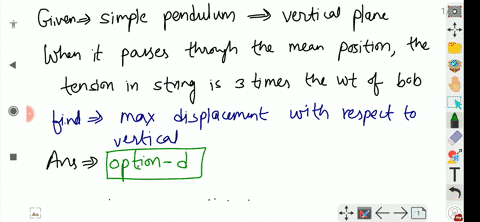 Given⇒ simple pendulum ⇒ vertical plane
When it passes through the mean position, the
tension in string is 3 times the wt of bob
find⇒ max displacement with respect to
vertical
Ans⇒ option-d